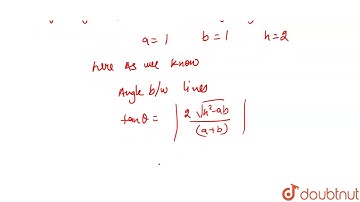 a = 1 b = 1 h = 2
here As we know
Angle b/w lines
tan θ = | 2 √h²-ab / (a+b) |
doubtnut